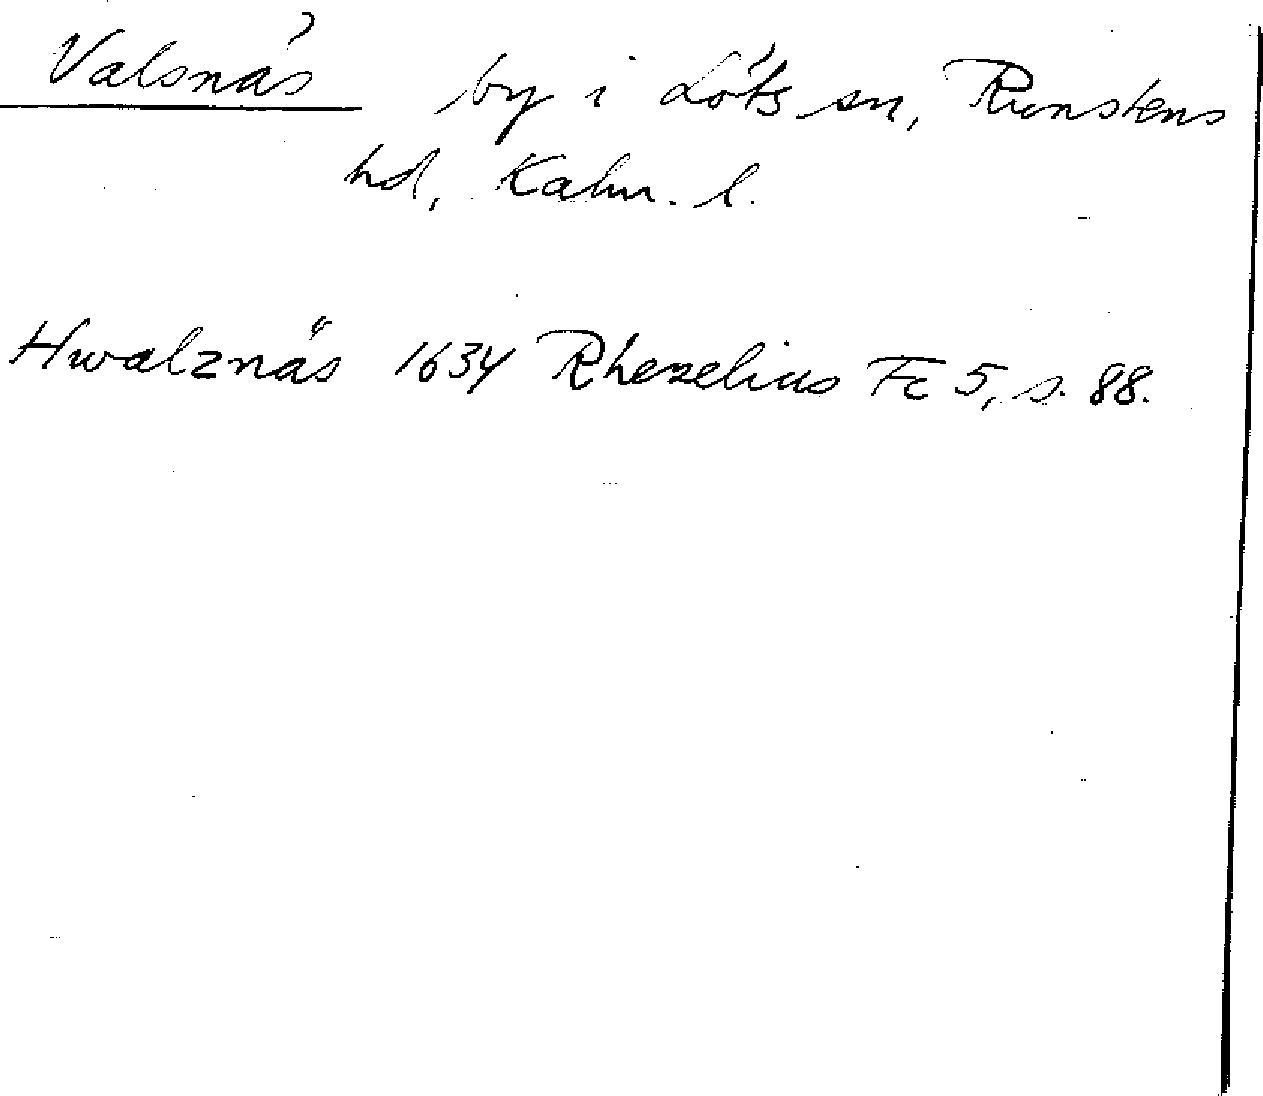 Valsnäs by i Löts sn, Runstens
hd, Kalm. l.
Hwalznäs 1634 Rhezelius Fc 5, s. 88.